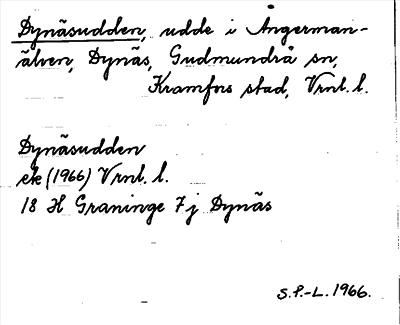 Dynäsudden, udde i Ångerman-
älven, Dynäs, Gudmundrå sn,
Kramfors stad, Vrnl. l.
Dynäsudden
ek (1966) Vrnl. l.
18 H Graninge 7 j Dynäs
S.P.-L. 1966.